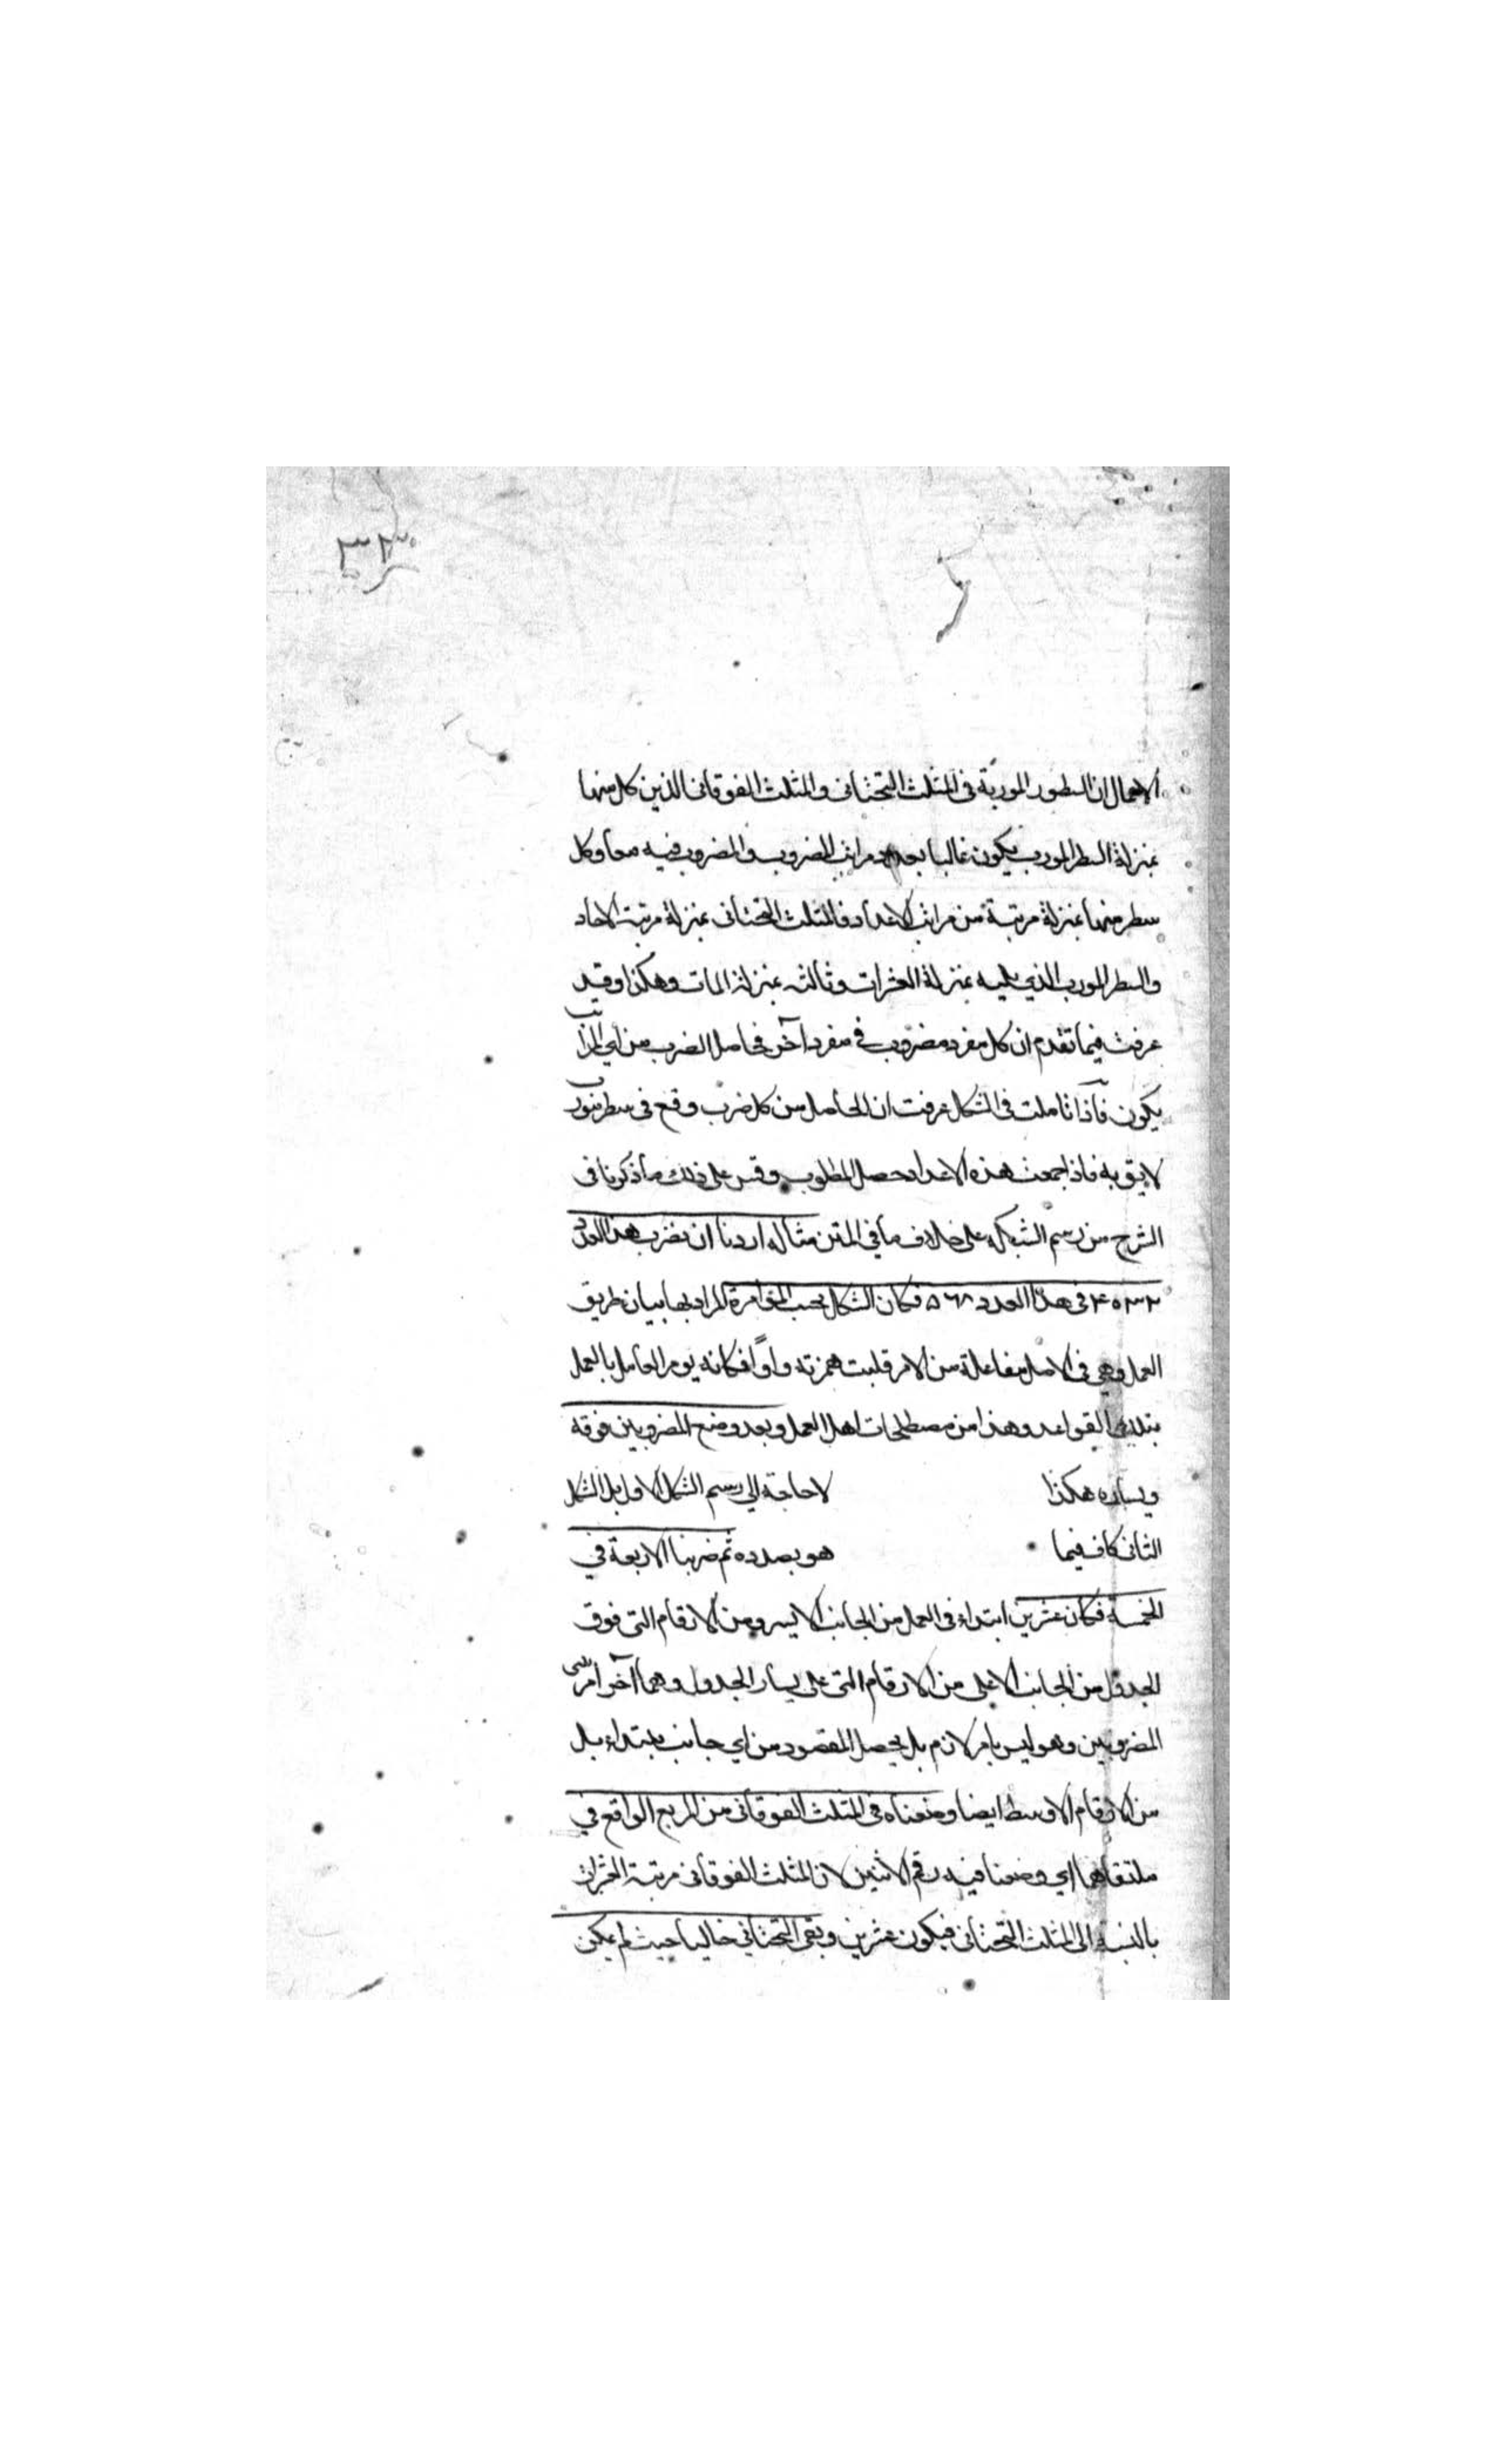 ٣٣
الاهمال ان السطور الموربة فى المثلث التحتانى والمثلث الفوقانى الذين كل منهما
بمنزلة السطر المورب يكون غالبا بعدد مراتب المضروب والمضروب فيه معا وكل
سطر منهما بمنزلة مرتبة من مراتب الاعداد فالمثلث التحتانى بمنزلة مرتبة الاحاد
والسطر المورب الذي يليه بمنزلة العشرات وثالثه بمنزلة المات وهكذا وقد
عرفت فيما تقدم ان كل مفرد مضروب فى مفرد آخر فحاصل الضرب من اي المراتب
يكون فاذا تاملت فى الشكل عرفت ان الحاصل من كل ضرب وقع فى سطر مورب
لايق به فاذا جمعت هذه الاعداد حصل المطلوب وقس على ذلك ما ذكرنا فى
الشرح من رسم الشبكة على خلاف ما فى المتن مثاله اردنا ان نضرب هذا العدد
۴۵۳۲ فى هذا العدد ۵۶۸ فكان الشكل بحسب المؤامرة المراد بها بيان طريق
العمل وهي فى الاصل مفاعلة من الامر قلبت همزته واوًا فكانه يومر العامل بالعمل
بتلك القواعد وهذا من مصطلحات اهل العمل وبعد وضع المضروبين فوقه
ويساره هكذا لا حاجة الي رسم الشكل الاول بل الشكل
الثانى كاف فيما هو بصدده ثم ضربنا الاربعة في
الخمسة فكان عشرين ابتداء فى العمل من الجانب الايسر ومن الارقام التى فوق
الجدول من الجانب الاعلى من الارقام التى على يسار الجدول وهما آخر
المضروبين وهو ليس بامر لازم بل يحصل المقصود من اي جانب يبتداء بل
من الارقام الاوسط ايضا وضعناه فى المثلث الفوقانى من المربع الواقع في
ملتقاهما اي وضعنا فيه رقم الاثنين لان المثلث الفوقانى مرتبة العشرات
بالنسبة الى المثلث التحتانى فيكون عشرين وبقى التحتانى خاليا حيث لم يكن